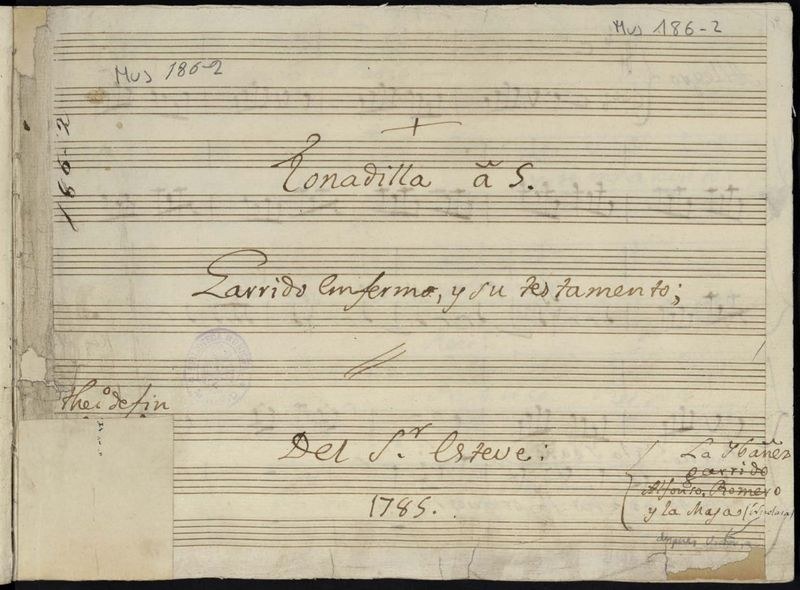 Mus 186-2
Mus 186-2
186-2
Tonadilla â 5.
Garrido Enfermo, y su testamento;
BIBLIOTECA MUNICIPAL
Del S.r Esteve:
1785.
La Ybañez
garrido
Alfonso. Romero
y la Maja
Allegro